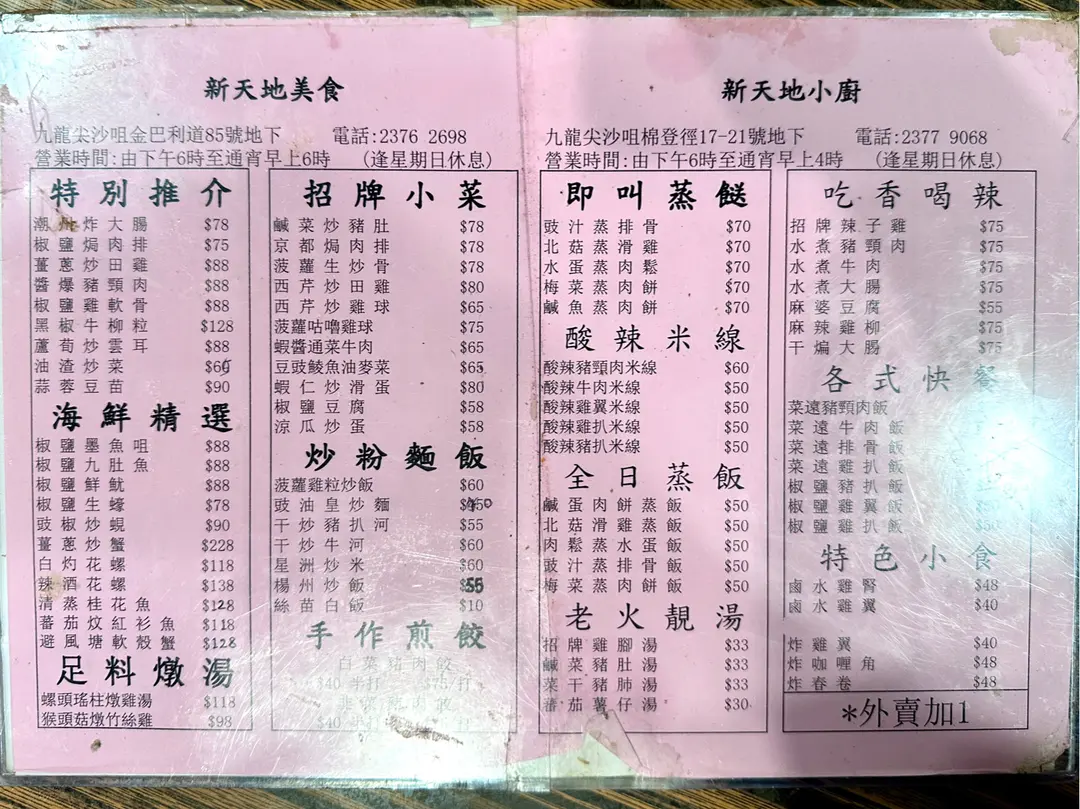 新天地美食
九龍尖沙咀金巴利道85號地下 電話:2376 2698
營業時間:由下午6時至通宵早上6時 (逢星期日休息)
特別推介
潮州炸大腸 $78
椒鹽焗肉排 $75
薑蔥炒田雞 $88
醬爆豬頸肉 $88
椒鹽雞軟骨 $88
黑椒牛柳粒 $128
蘆荀炒雲耳 $88
油渣炒菜
蒜蓉豆苗 $90
海鮮精選
椒鹽墨魚咀 $88
椒鹽九肚魚 $88
椒鹽鮮魷 $88
椒鹽生蠔 $78
豉椒炒蜆 $90
薑蔥炒蟹 $228
白灼花螺 $118
辣酒花螺 $138
清蒸桂花魚 $128
蕃茄炆紅衫魚 $118
避風塘軟殼蟹 $128
足料燉湯
螺頭瑤柱燉雞湯 $118
猴頭菇燉竹絲雞 $98
招牌小菜
鹹菜炒豬肚 $78
京都焗肉排 $78
菠蘿生炒骨 $78
西芹炒田雞 $80
西芹炒雞球 $65
菠蘿咕嚕雞球 $75
蝦醬通菜牛肉 $65
豆豉鯪魚油麥菜 $65
蝦仁炒滑蛋 $80
椒鹽豆腐 $58
涼瓜炒蛋 $58
炒粉麵飯
菠蘿雞粒炒飯 $60
豉油皇炒麵
干炒豬扒河 $55
干炒牛河 $60
星洲炒米 $60
楊州炒飯 $55
絲苗白飯 $10
手作煎餃
白菜豬肉餃
$40 半打 $75/打
$40 半打
新天地小廚
九龍尖沙咀棉登徑17-21號地下 電話:2377 9068
營業時間:由下午6時至通宵早上4時 (逢星期日休息)
即叫蒸餸
豉汁蒸排骨 $70
北菇蒸滑雞 $70
水蛋蒸肉鬆 $70
梅菜蒸肉餅 $70
鹹魚蒸肉餅 $70
酸辣米線
酸辣豬頸肉米線 $60
酸辣牛肉米線 $50
酸辣雞翼米線 $50
酸辣雞扒米線 $50
酸辣豬扒米線 $50
全日蒸飯
鹹蛋肉餅蒸飯 $50
北菇滑雞蒸飯 $50
肉鬆蒸水蛋飯 $50
豉汁蒸排骨飯 $50
梅菜蒸肉餅飯 $50
老火靚湯
招牌雞腳湯 $33
鹹菜豬肚湯 $33
菜干豬肺湯 $33
蕃茄薯仔湯 $30
吃香喝辣
招牌辣子雞 $75
水煮豬頸肉 $75
水煮牛肉 $75
水煮大腸 $75
麻婆豆腐 $55
麻辣雞柳 $75
干煸大腸 $75
各式快餐
菜遠豬頸肉飯
菜遠牛肉飯
菜遠排骨飯
菜遠雞扒飯
椒鹽豬扒飯
椒鹽雞翼飯
椒鹽雞扒飯
特色小食
鹵水雞腎 $48
鹵水雞翼 $40
炸雞翼 $40
炸咖喱角 $48
炸春卷 $48
*外賣加1